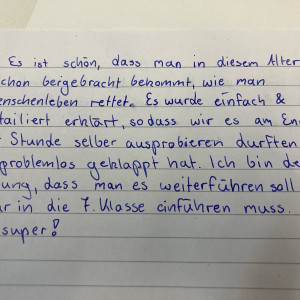 Es ist schön, dass man in diesem Alter
chon beigebracht bekommt, wie man
enschenleben rettet. Es wurde einfach &
tailiert erklärt, sodass wir es am En
Stunde selber ausprobieren durften
problemlos geklappt hat. Ich bin de
ung, dass man es weiterführen soll
r in die 7. Klasse einführen muss.
super!